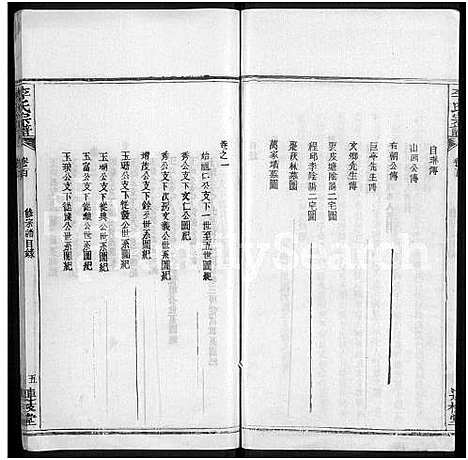 自琳傳
山西公傳
右朝公傳
巨亭先生傳
文鄉先生傳
栗皮塘陰陽二宅圖
程邱李陰陽二宅圖
棗庆林墓圖
萬家塝墓圖
卷之一
始祖仁公支下一世至五世圖紀
秀公支下文仁公圖紀
秀公支下次房文義公世系圖紀
增茂公支下銓公世系圖紀
玉瑎公支下
公世系圖紀
玉瑚公世系圖紀
玉富公支下從典公世系圖紀
玉琅公支下從
公世系圖紀
李氏宗譜
修宗譜目錄
五
連枝堂